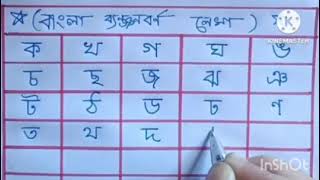 * (বাংলা ব্যঞ্জনবর্ণ লেখা)
ক খ গ ঘ ঙ
চ ছ জ ঝ ঞ
ট ঠ ড ঢ ণ
ত থ দ
KINEMASTER
InShOt